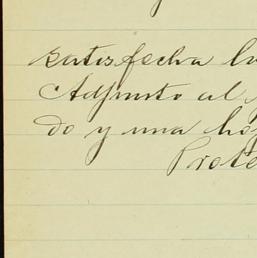 satisfecha
Adjunto al
do y una
Prote